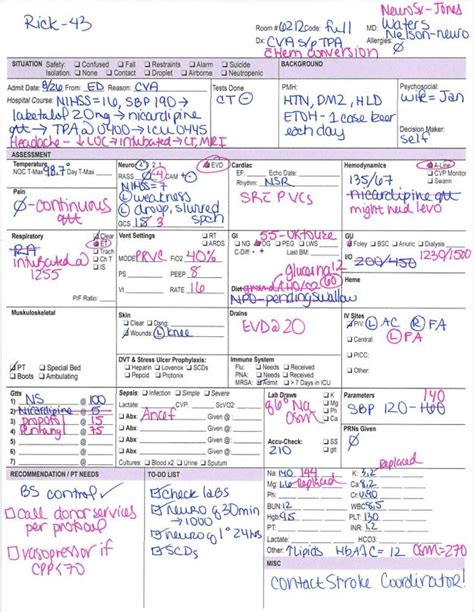 Rick - 43
Room # 6212 Code: full
NeuroSx - Jones
MD: Waters
Nelson-neuro
Dx: CVA s/p TPA
Allergies: Ø
Hem conversion
SITUATION Safety: Fall Restraints Alarm Suicide
Isolation: Contact Droplet Airborne Neutropenic
BACKGROUND
Admit Date: 8/26 From: ED CVA
Tests Done
CT
Hospital Course: NIHSS = 16, SBP 190 →
labetalol 20mg → nicardipine
gtt → TPA @ 0400 → ICU 0445
Headache → ↓ LOC → intubated → CT, MRI
PMH:
HTN, DM2, HLD
ETOH - 1 case beer
each day
Psychosocial:
wife = Jan
Decision Maker:
self
ASSESSMENT
Temperature
NOC T-Max 98.7° Day T-Max
Pain
Ø - continuous
gtt
Neuro EVD
RASS CAM
NIHSS = 7
weakness
droop, slurred
speech
GCS
Cardiac
EF: Echo Date:
Rhythm: NSR
SR c PVCs
Hemodynamics
A-Line
CVP Monitor
Swann
135/67
nicardipine gtt
might need levo
Respiratory
Clear
ET
Trach
Ch T
Chest IS
RA
intubated @
1255
P/F Ratio:
Vent Settings RT
ARDS
MODE PRVC FiO2 40%
PS PEEP 8
VT RATE 16
GI
NG OG PEG LWS
C-Diff + Last BM:
glucerna 1.2
Diet
NPO - pending swallow
GU
Foley BSC Anuric Dialysis
I/O 200/450
1230/1500
Heme
Muskuloskeletal
PT Special Bed
Boots Ambulating
Skin
Clear Dsng:
Wounds: L knee
Drains
EVD @ 20
IV Sites
PIV: L AC R FA
L FA
Central:
PICC:
Other:
DVT & Stress Ulcer Prophylaxis:
Heparin Lovenox SCDs
Pepcid Protonix Coumadin
Immune System
Flu: Needs Received
PNA: Needs Received
MRSA: Admit > 7 Days in ICU
Gtts
NS @ 100
Nicardipine @ 5
propofol @ 15
fentanyl @ 75
Sepsis Infection Simple Severe
Lactate CVP: ScvO2
Abx: Ancef Given @
Abx: Given @
Abx: Given @
Abx: Given @
Cultures: Blood x2 Urine Sputum
Lab Draws
q6° Na
Osm
Accu-Check:
210
SSI
Parameters
140
SBP 120-160
PRNs Given
Ø
RECOMMENDATION / PT NEEDS
BS control
call donor services
per protocol
vasopressor if
CPP < 70
TO-DO LIST
check labs
neuro q 30min
→ 1000
neuro q 1° 24NS
SCDs
Na: 140 144
K: 3.2
replaced
Mg: 1.6 Replaced
Ph:
BUN: 12
WBC: 8.5
Hgb: 9.5
PLT: 130
PT:
INR: 1.2
Lactate:
HCO3:
Other: ↑lipids HbA1C = 12 OSM = 270
MISC
contact Stroke Coordinator!